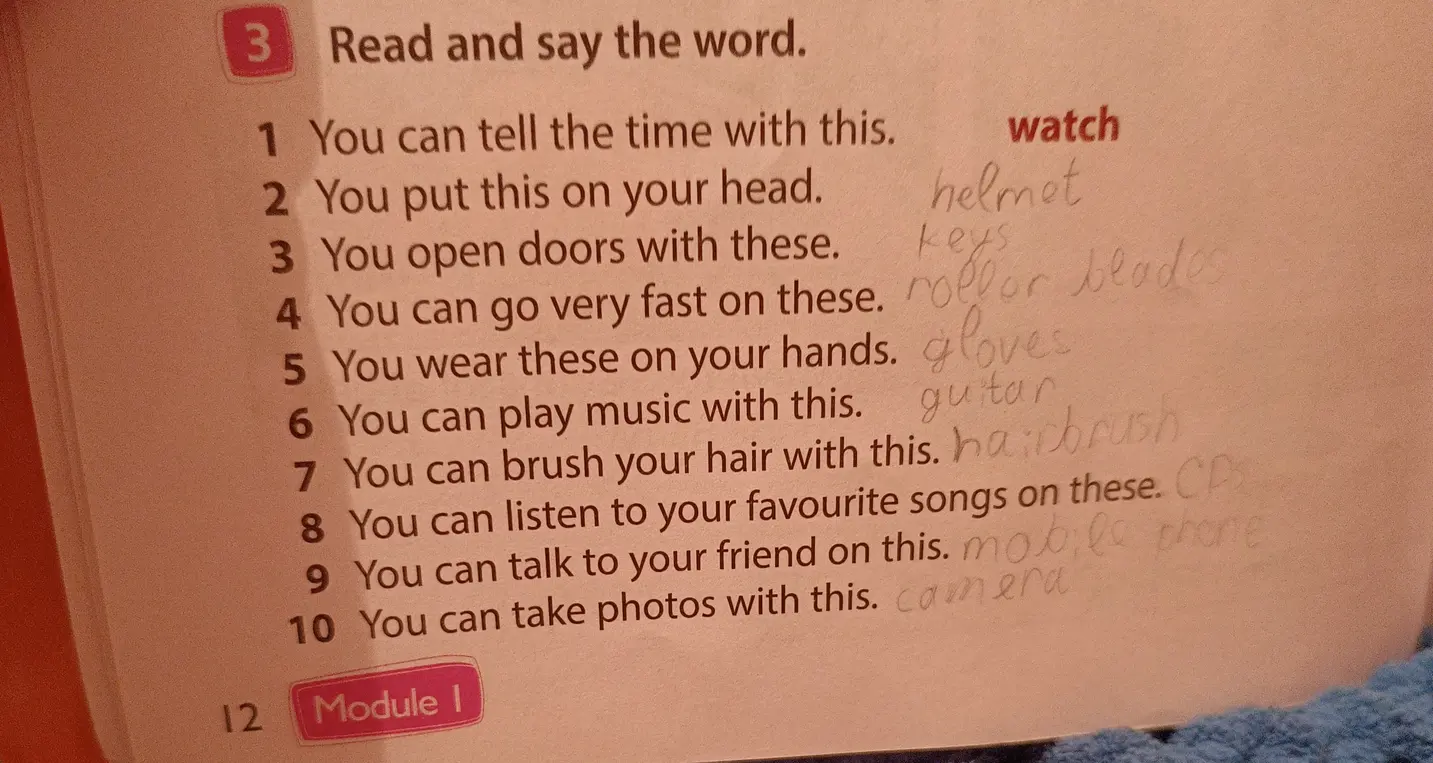 3 Read and say the word.
1 You can tell the time with this. watch
2 You put this on your head. helmet
3 You open doors with these. keys
4 You can go very fast on these. roller blades
5 You wear these on your hands. gloves
6 You can play music with this. guitar
7 You can brush your hair with this. hairbrush
8 You can listen to your favourite songs on these. CDs
9 You can talk to your friend on this. mobile phone
10 You can take photos with this. camera
12 Module 1